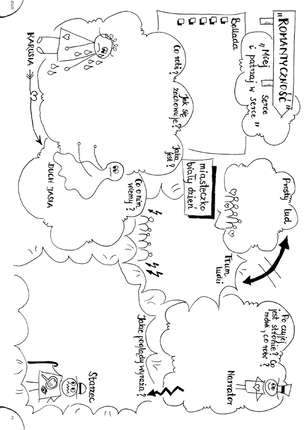 "ROMANTYCZNOŚĆ"
"Miej serce
i patrzaj w serce"
Ballada
Jaka
jest?
Jak się
zachowuje?
Co robi?
KARUSIA
DUCH JASIA
Co o nim
wiemy?
miasteczko
biały dzień
Prosty lud
Tłum
ludzi
Po czyjej
jest stronie? Co
mówi, co robi?
Narrator
Jakie poglądy wyraża?
Starzec